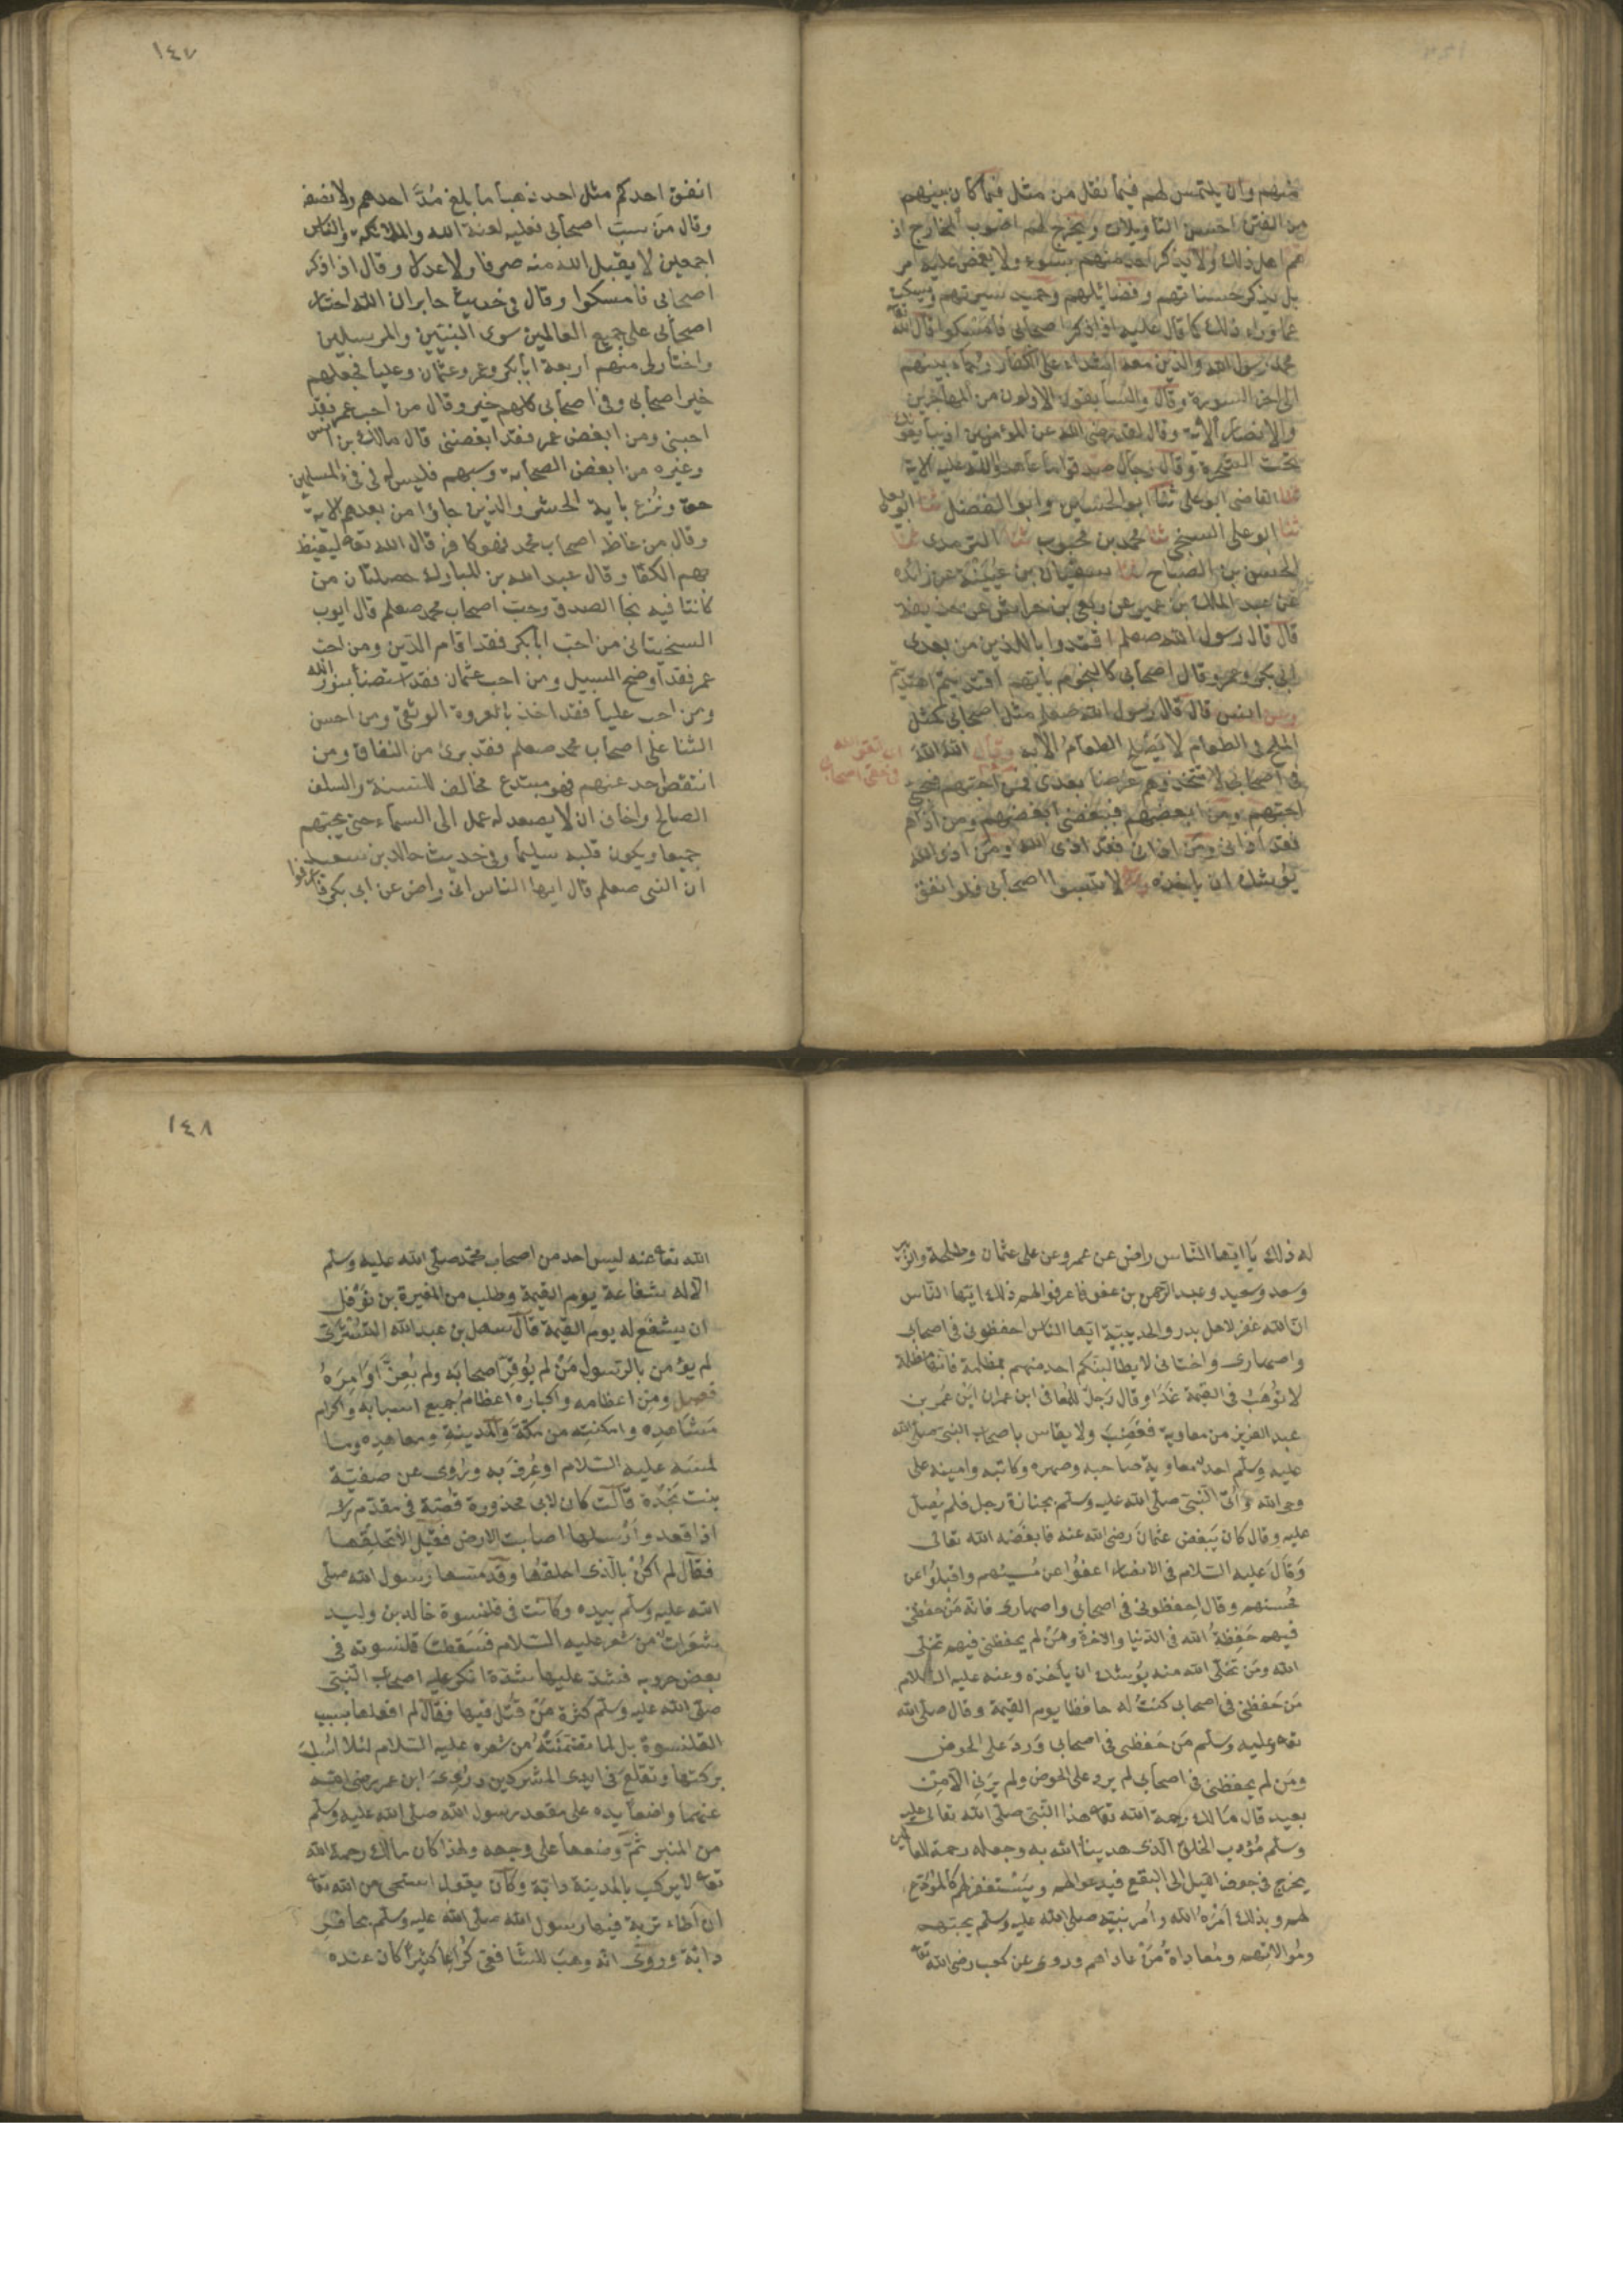 منهم وان يلتمس لهم فيما نقل من مثل فيما كان بينهم
من الفتن احسن التاويلات ويخرج لهم اصوب المخارج اذ
هم اهل ذلك ولا يذكر احد منهم بسوء ولا يغمض عليه امر
بل يذكر حسناتهم وفضائلهم وحميد سيرتهم ويسكت
عما وراء ذلك كما قال عليه اذا ذكر اصحابى فامسكوا قال الله تعه
محمد رسول الله والذين معه اشداء على الكفار رحماء بينهم
الى اخر السورة وقال والسابقون الاولون من المهاجرين
والانصار الآية وقال لقد رضى الله عن المؤمنين اذ يبايعونك
تحت الشجرة وقال رجال صدقوا ما عاهدوا الله عليه الاية
ثنا القاضى ابو على ثنا ابو الحسين وابو الفضل ثنا ابو يعلى
ثنا ابو على السنجى ثنا محمد بن محبوب ثنا الترمذى ثنا
الحسن بن الصباح ثنا سفيان بن عيينة عن زائدة
عن عبد الملك بن عمير عن ربعى بن حراش عن حذيفة
قال قال رسول الله صعلم اقتدوا باللذين من بعدى
ابى بكر وعمر وقال اصحابى كالنجوم بايهم اقتديتم اهتديتم
وعن انس قال قال رسول الله صعلم مثل اصحابى كمثل
الملح فى الطعام لا يصلح الطعام الا به وقال الله الله
فى اصحابى لا تتخذوهم غرضا بعدى فمن احبهم فبحبى
احبهم ومن ابغضهم فببغضى ابغضهم ومن اذاهم
فقد اذانى ومن اذانى فقد اذى الله ومن اذى الله
يوشك ان يأخذه وقال لا تسبوا اصحابى فلو انفق
١٤٧
انفق احدكم مثل احد ذهبا ما بلغ مُدَّ احدهم ولا نصفه
وقال من سب اصحابى فعليه لعنة الله والملائكة والناس
اجمعين لا يقبل الله منه صرفا ولا عدلا وقال اذا ذكر
اصحابى فامسكوا وقال فى حديث جابر ان الله اختار
اصحابى على جميع العالمين سوى النبيين والمرسلين
واختار لى منهم اربعة ابا بكر وعمر وعثمان وعليا فجعلهم
خير اصحابى وفى اصحابى كلهم خير وقال من احب عمر فقد
احبنى ومن ابغض عمر فقد ابغضنى قال مالك بن انس
وغيره من ابغض الصحابة وسبهم فليس له فى فئ المسلمين
حق ونزع باية الحشر والذين جاؤا من بعدهم الاية
وقال من غاظ اصحاب محمد فهو كافر قال الله تعه ليغيظ
بهم الكفار وقال عبد الله بن المبارك خصلتان من
كانتا فيه نجا الصدق وحب اصحاب محمد صعلم قال ايوب
السختيانى من احب ابا بكر فقد اقام الدين ومن احب
عمر فقد اوضح السبيل ومن احب عثمان فقد استضأ بنور الله
ومن احب عليا فقد اخذ بالعروة الوثقى ومن احسن
الثنا على اصحاب محمد صعلم فقد برئ من النفاق ومن
انتقص احد عنهم فهو مبتدع مخالف للسنة والسلف
الصالح واخاف ان لا يصعد له عمل الى السماء حتى يحبهم
جميعا ويكون قلبه سليما وفى حديث خالد بن سعيد
ان النبى صعلم قال ايها الناس انى راض عن ابى بكر فاعرفوا
له ذلك يا ايها الناس راض عن عمر وعن على عثمان وطلحة والزبير
وسعد وسعيد وعبد الرحمن بن عفو فاعرفوا لهم ذلك ايها الناس
ان الله غفر لاهل بدر والحديبية ايها الناس احفظونى فى اصحابى
واصهارى واختانى لا يطالبنكم احد منهم بمظلمة فانها مظلمة
لا توهب فى القيمة غدا وقال رجل للمعافى ابن عمران اين عمر بن
عبد العزيز من معاوية فغضب ولا يقاس باصحاب النبى صلى الله
عليه وسلم احد معاوية صاحبه وصهره وكاتبه وامينه على
وحى الله وأتى النبى صلى الله عليه وسلم بجنازة رجل فلم يصل
عليه وقال كان يبغض عثمان رضى الله عنه فابغضه الله تعالى
وقال عليه السلام فى الانصار اعفوا عن مسيئهم واقبلوا من
محسنهم وقال احفظونى فى اصحابى واصهارى فانه من حفظنى
فيهم حفظه الله فى الدنيا والاخرة ومن لم يحفظنى فيهم تخلى
الله ومن تخلى الله منه يوشك ان يأخذه وعنه عليه السلام
من حفظنى فى اصحابى كنت له حافظا يوم القيمة وقال صلى الله
تعه وعليه وسلم من حفظنى فى اصحابى ورد على الحوض
ومن لم يحفظنى فى اصحابى لم يرد على الحوض ولم يرنى الا من
بعيد قال مالك رحمة الله تعه هذا النبى صلى الله تعالى عليه
وسلم مؤدب الخلق الذى هدينا الله به وجعله رحمة للعالمين
يخرج فى جوف الليل الى البقيع فيدعوا لهم ويستغفر لهم كالمودع
لهم وبذلك امره الله وأمر نبيه صلى الله عليه وسلم بحبهم
وموالاتهم ومعاداة من عاداهم وروى عن كعب رضى الله تعه
١٤٨
الله تعه عنه ليس احد من اصحاب محمد صلى الله عليه وسلم
الا له شفاعة يوم القيمة وطلب من المغيرة بن نوفل
ان يشفع له يوم القيمة قال سهل بن عبد الله التسترى
لم يؤمن بالرسول من لم يوقر اصحابه ولم يعز اوامره
فصل ومن اعظامه واكباره اعظام جميع اسبابه واكرام
مشاهده وامكنته من مكة والمدينة ومعاهده وما
لمسه عليه السلام او عرف به وروى عن صفية
بنت نجدة قالت كان لابى محذورة قصة فى مقدم رأسه
اذا قعد وأرسلها اصابت الارض فقيل الا تحلقها
فقال لم اكن بالذى احلقها وقد مسها رسول الله صلى
الله عليه وسلم بيده وكانت فى قلنسوة خالد بن وليد
شعرات من شعره عليه السلام فسقطت قلنسوته فى
بعض حروبه فشد عليها شدة انكر عليه اصحاب النبى
صلى الله عليه وسلم كثرة من قتل فيها فقال لم افعلها بسبب
القلنسوة بل لما تضمنته من شعره عليه السلام لئلا اسلب
بركتها وتقلع فى ايدى المشركين ورؤى ابن عمر رضى الله
عنهما واضعا يده على مقعد رسول الله صلى الله عليه وسلم
من المنبر ثم وضعها على وجهه ولهذا كان مالك رحمة الله
تعه لا يركب بالمدينة دابة وكان يقول استحى من الله تعه
ان أطاء تربة فيها رسول الله صلى الله عليه وسلم بحافر
دابة وروى انه وهب للشافعى كراعا كثيرا كان عنده